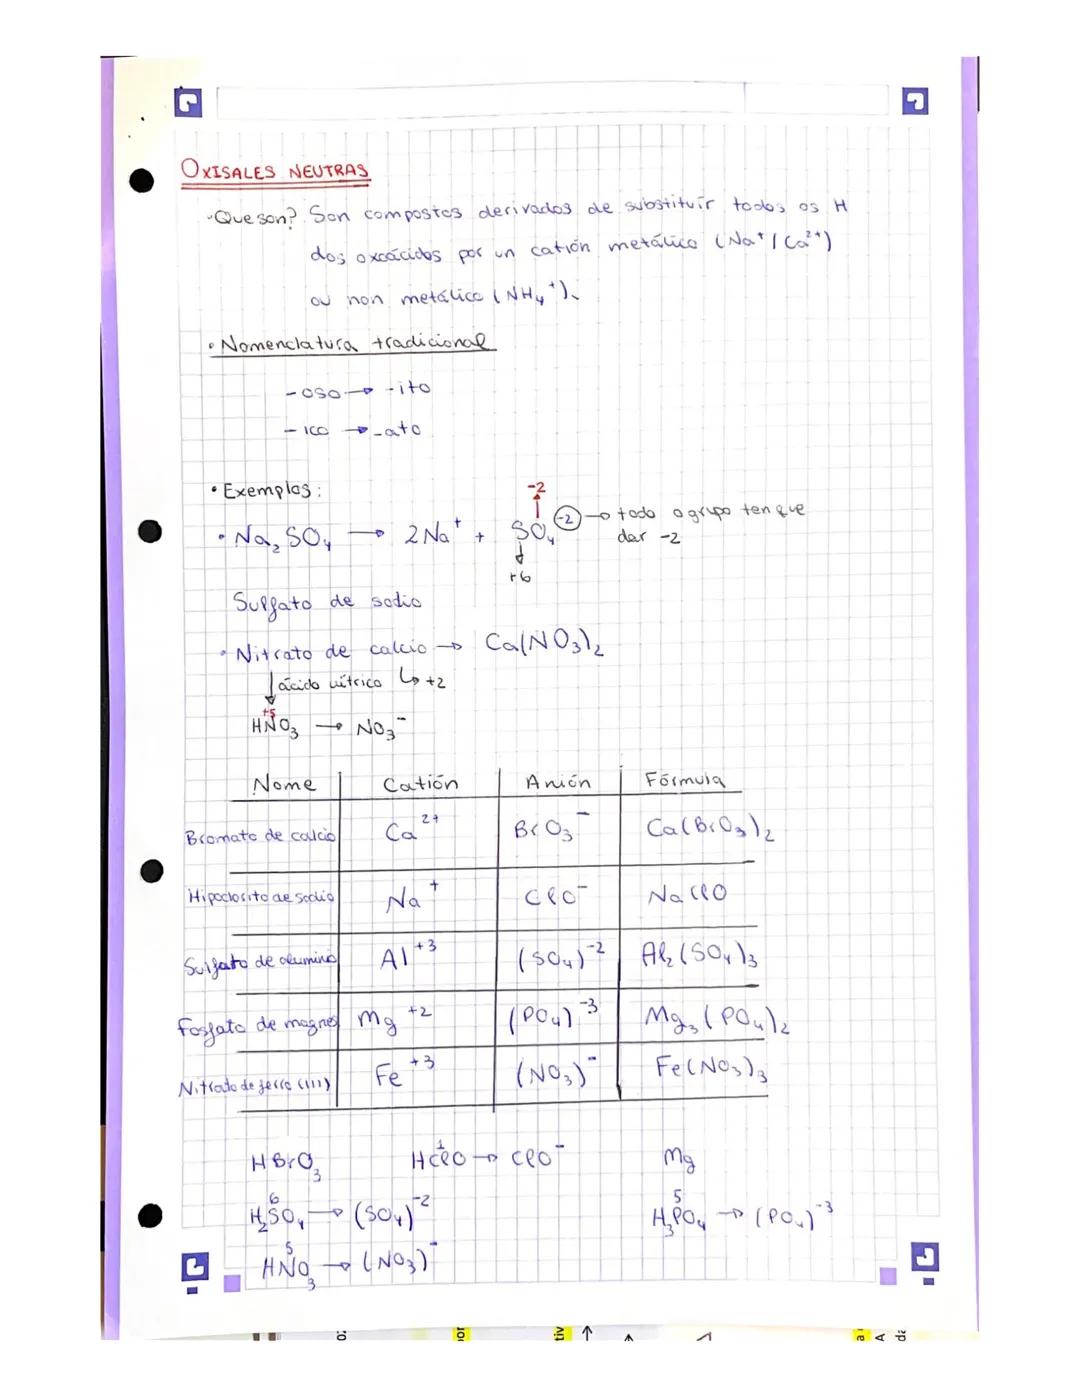 OXISALES NEUTRAS
· Que son? Son compostos derivados de substituír todos os H
dos oxoácidos por un catión metálico (Na⁺ / Ca²⁺)
ou non metálico (NH₄⁺).
• Nomenclatura tradicional
- oso → - ito
- ico → - ato
• Exemplos:
-2
• Na₂SO₄ → 2Na⁺ + SO₄ (-2) → todo o grupo ten que
dar -2
+6
Sulfato de sodio
• Nitrato de calcio → Ca(NO₃)₂
ácido nítrico ↳ +2
+5
HNO₃ → NO₃⁻
Nome | Catión | Anión | Fórmula
Bromato de calcio | Ca²⁺ | BrO₃⁻ | Ca(BrO₃)₂
Hipoclorito de sodio | Na⁺ | ClO⁻ | NaClO
Sulfato de aluminio | Al⁺³ | (SO₄)⁻² | Al₂(SO₄)₃
Fosfato de magnes | Mg⁺² | (PO₄)⁻³ | Mg₃(PO₄)₂
Nitrato de ferro (III) | Fe⁺³ | (NO₃)⁻ | Fe(NO₃)₃
1
HBrO₃ HClO → ClO⁻ Mg
6 5
H₂SO₄ → (SO₄)⁻² H₃PO₄ → (PO₄)⁻³
5
HNO₃ → (NO₃)⁻